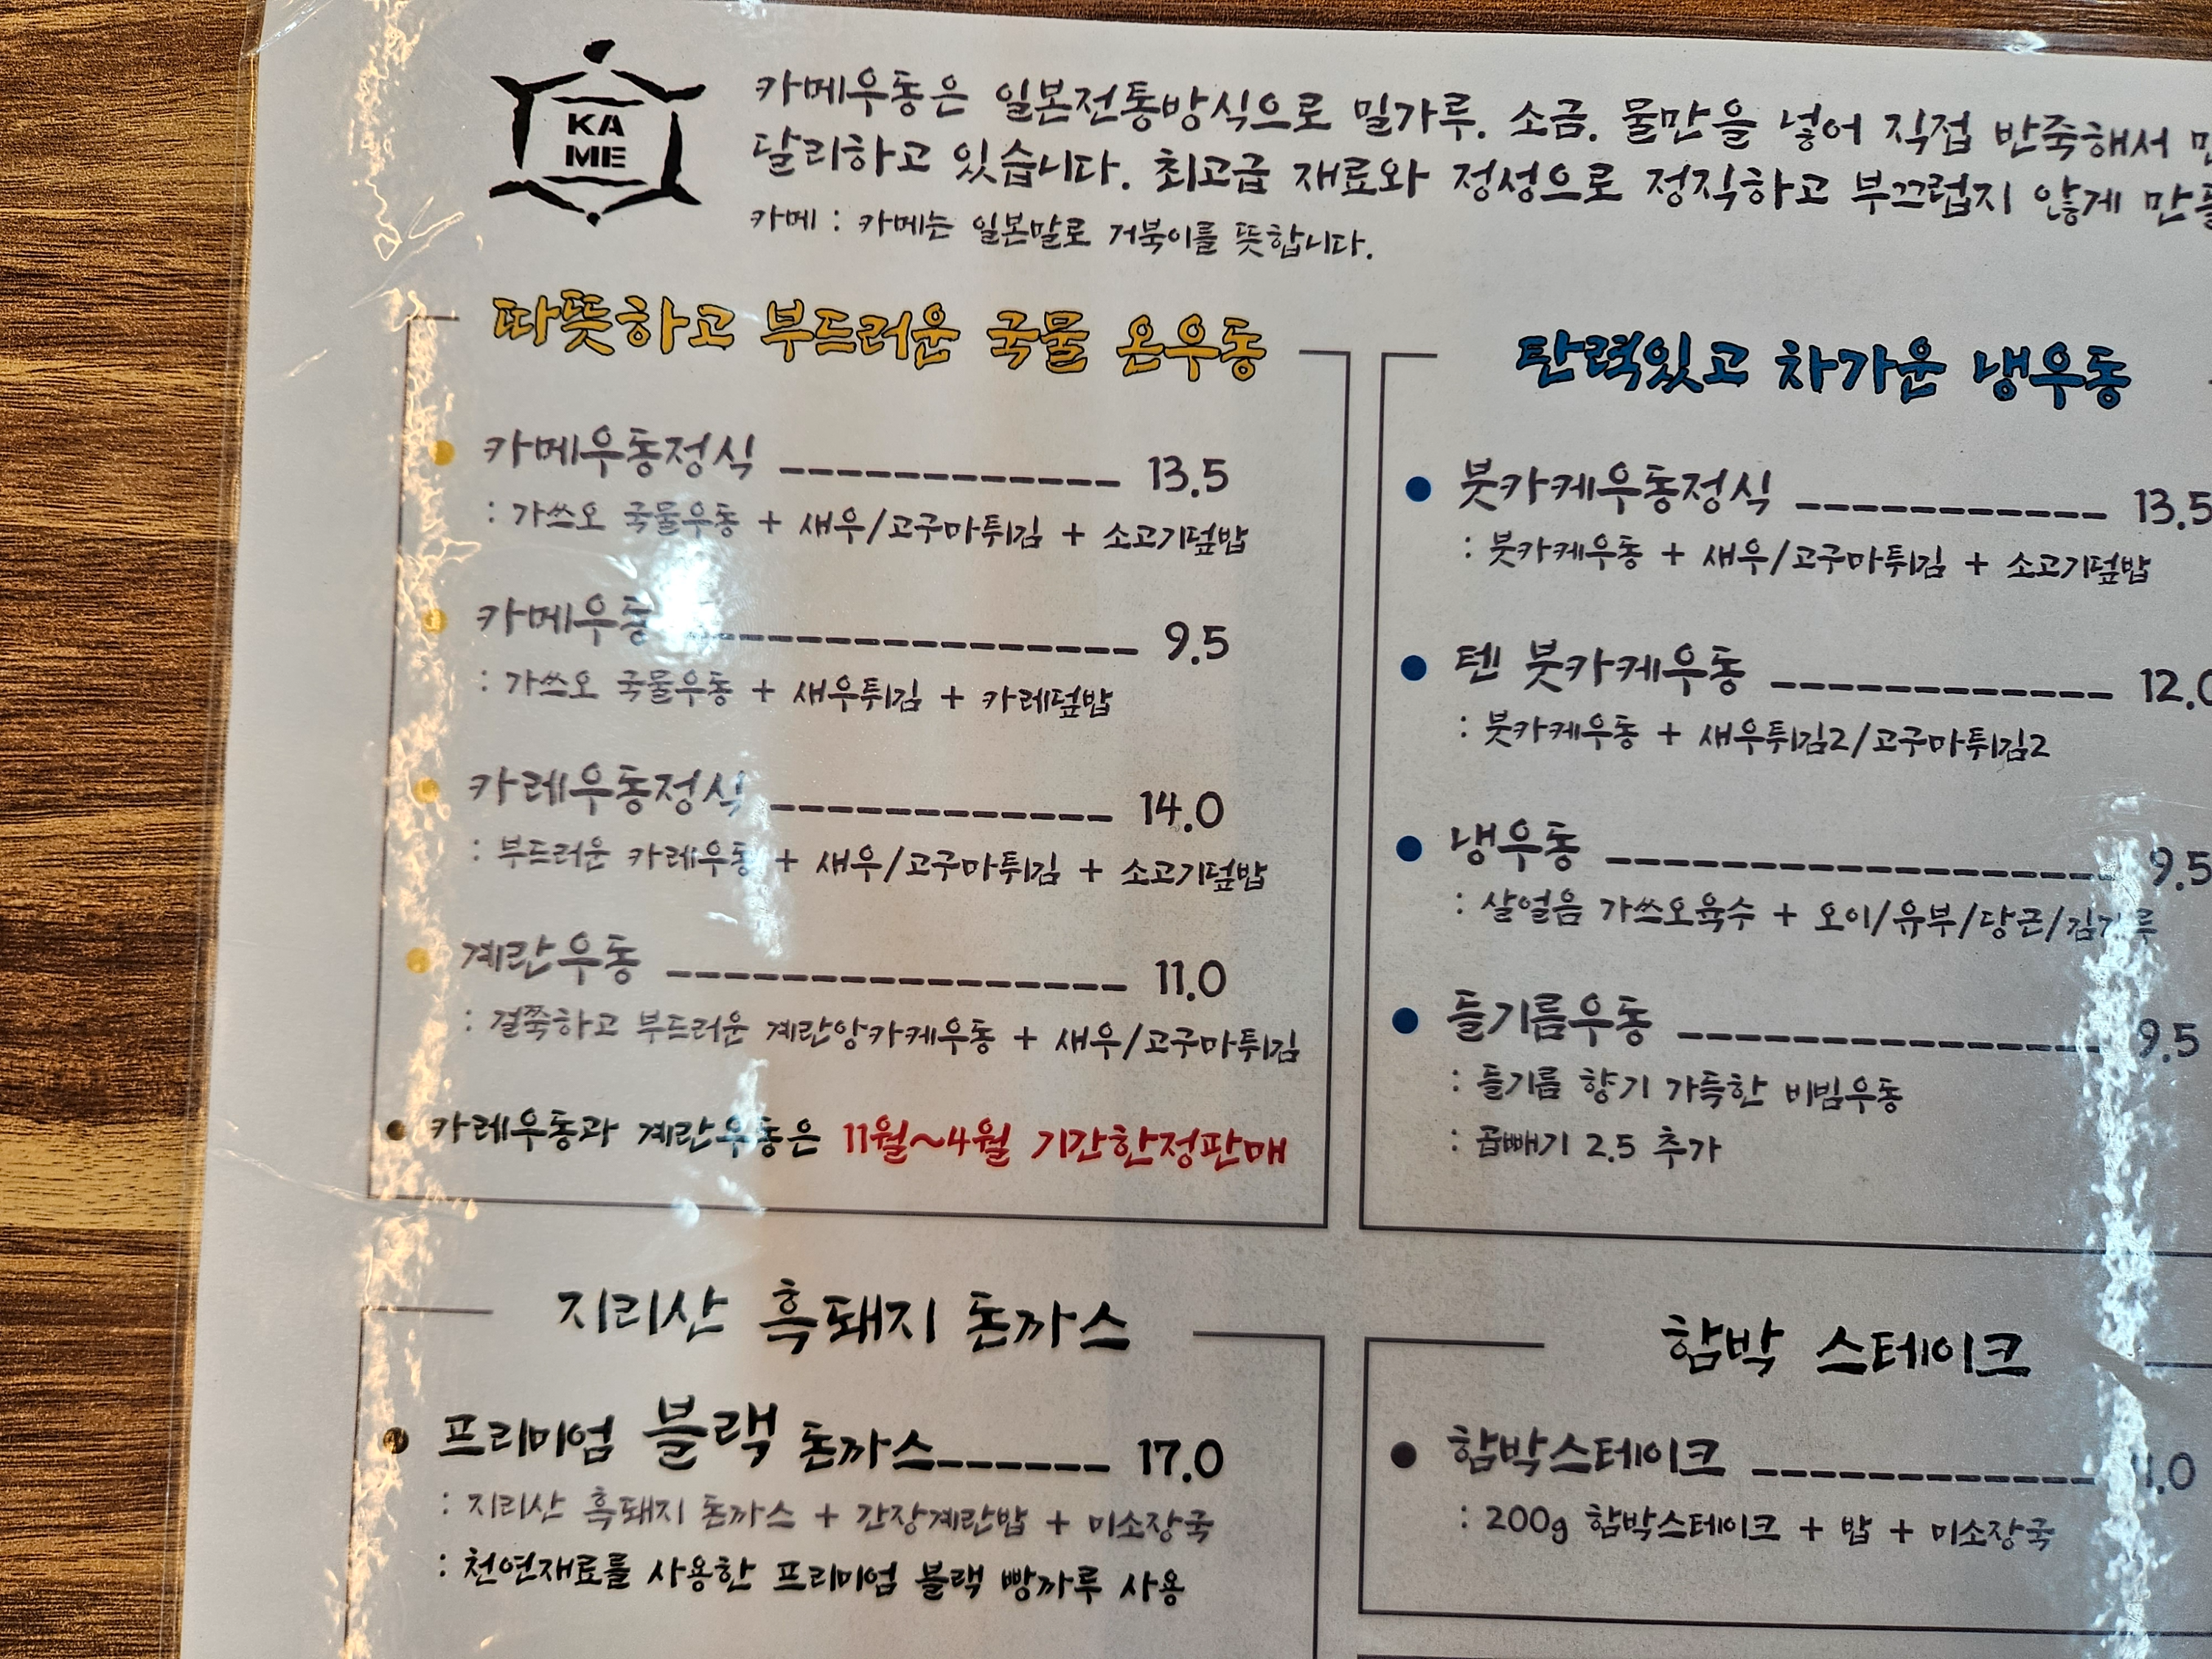 KA
ME
카메우동은 일본전통방식으로 밀가루. 소금. 물만을 넣어 직접 반죽해서
달리하고 있습니다. 최고급 재료와 정성으로 정직하고 부끄럽지 않게
카메 : 카메는 일본말로 거북이를 뜻합니다.
따뜻하고 부드러운 국물 온우동
카메우동정식 ------------ 13.5
: 가쓰오 국물우동 + 새우/고구마튀김 + 소고기덮밥
카메우동 --------------- 9.5
: 가쓰오 국물우동 + 새우튀김 + 카레덮밥
카레우동정식 ------------ 14.0
: 부드러운 카레우동 + 새우/고구마튀김 + 소고기덮밥
계란우동 ---------------- 11.0
: 걸쭉하고 부드러운 계란앙카케우동 + 새우/고구마튀김
카레우동과 계란우동은 11월~4월 기간한정판매
탄력있고 차가운 냉우동
붓카케우동정식 ----------- 13.5
: 붓카케우동 + 새우/고구마튀김 + 소고기덮밥
텐 붓카케우동 ------------ 12.0
: 붓카케우동 + 새우튀김2/고구마튀김2
냉우동 ------------------ 9.5
: 살얼음 가쓰오육수 + 오이/유부/당근/김가루
들기름우동 --------------- 9.5
: 들기름 향기 가득한 비빔우동
: 곱빼기 2.5 추가
지리산 흑돼지 돈까스
프리미엄 블랙 돈까스------ 17.0
: 지리산 흑돼지 돈까스 + 간장계란밥 + 미소장국
: 천연재료를 사용한 프리미엄 블랙 빵가루 사용
함박 스테이크
함박스테이크 ------------
: 200g 함박스테이크 + 밥 + 미소장국